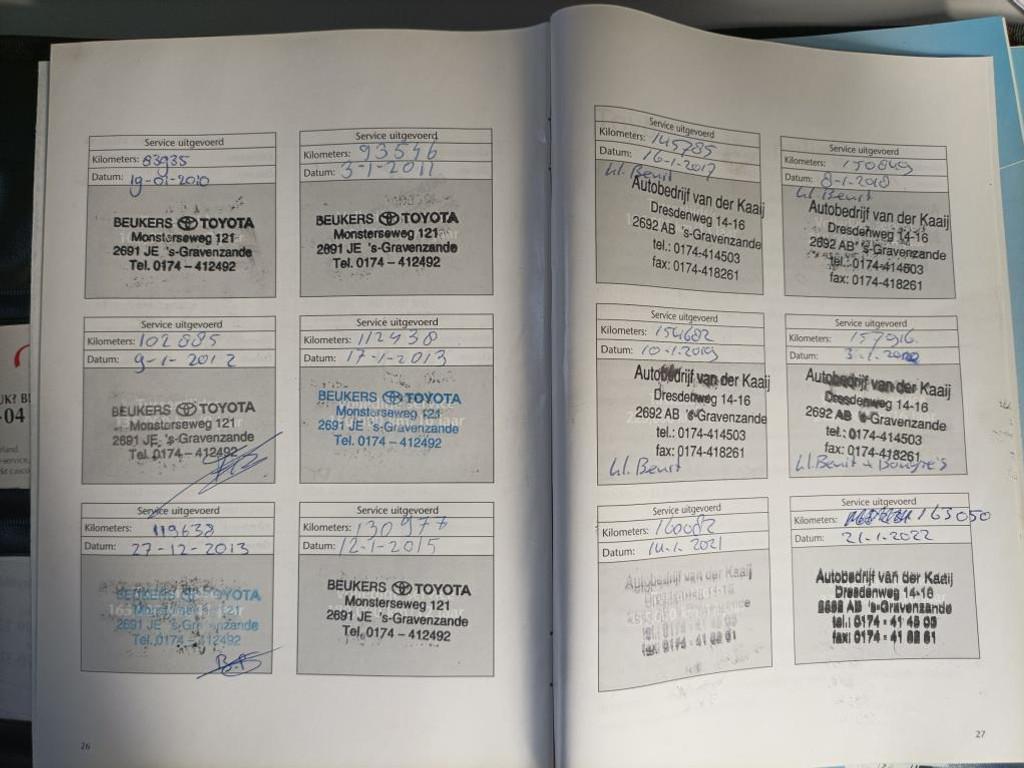 Service uitgevoerd
Kilometers: 83935
Datum: 19-01-2010
BEUKERS TOYOTA
Monsterseweg 121
2691 JE 's-Gravenzande
Tel. 0174 – 412492
Service uitgevoerd
Kilometers: 93546
Datum: 3-1-2011
BEUKERS TOYOTA
Monsterseweg 121
2691 JE 's-Gravenzande
Tel. 0174 – 412492
Service uitgevoerd
Kilometers: 102885
Datum: 9-1-2012
BEUKERS TOYOTA
Monsterseweg 121
2691 JE 's-Gravenzande
Tel. 0174 – 412492
Service uitgevoerd
Kilometers: 112438
Datum: 17-1-2013
BEUKERS TOYOTA
Monsterseweg 121
2691 JE 's-Gravenzande
Tel. 0174 – 412492
Service uitgevoerd
Kilometers: 119638
Datum: 27-12-2013
BEUKERS TOYOTA
Monsterseweg 121
2691 JE 's-Gravenzande
Tel. 0174 – 412492
Service uitgevoerd
Kilometers: 130977
Datum: 12-1-2015
BEUKERS TOYOTA
Monsterseweg 121
2691 JE 's-Gravenzande
Tel. 0174 – 412492
26
Service uitgevoerd
Kilometers: 145785
Datum: 16-1-2017
Autobedrijf van der Kaaij
Dresdenweg 14-16
2692 AB 's-Gravenzande
tel.: 0174-414503
fax: 0174-418261
Service uitgevoerd
Kilometers: 150849
Datum: 8-1-2018
Autobedrijf van der Kaaij
Dresdenweg 14-16
2692 AB 's-Gravenzande
tel.: 0174-414503
fax: 0174-418261
Service uitgevoerd
Kilometers: 154682
Datum: 10-1-2019
Autobedrijf van der Kaaij
Dresdenweg 14-16
2692 AB 's-Gravenzande
tel.: 0174-414503
fax: 0174-418261
Service uitgevoerd
Kilometers: 157916
Datum: 3-1-2020
Autobedrijf van der Kaaij
Dresdenweg 14-16
2692 AB 's-Gravenzande
tel.: 0174-414503
fax: 0174-418261
Service uitgevoerd
Kilometers: 160082
Datum: 14-1-2021
Autobedrijf van der Kaaij
Service uitgevoerd
Kilometers: 163050
Datum: 21-1-2022
Autobedrijf van der Kaaij
Dresdenweg 14-16
2692 AB 's-Gravenzande
tel.: 0174 - 41 45 03
fax: 0174 - 41 82 61
27